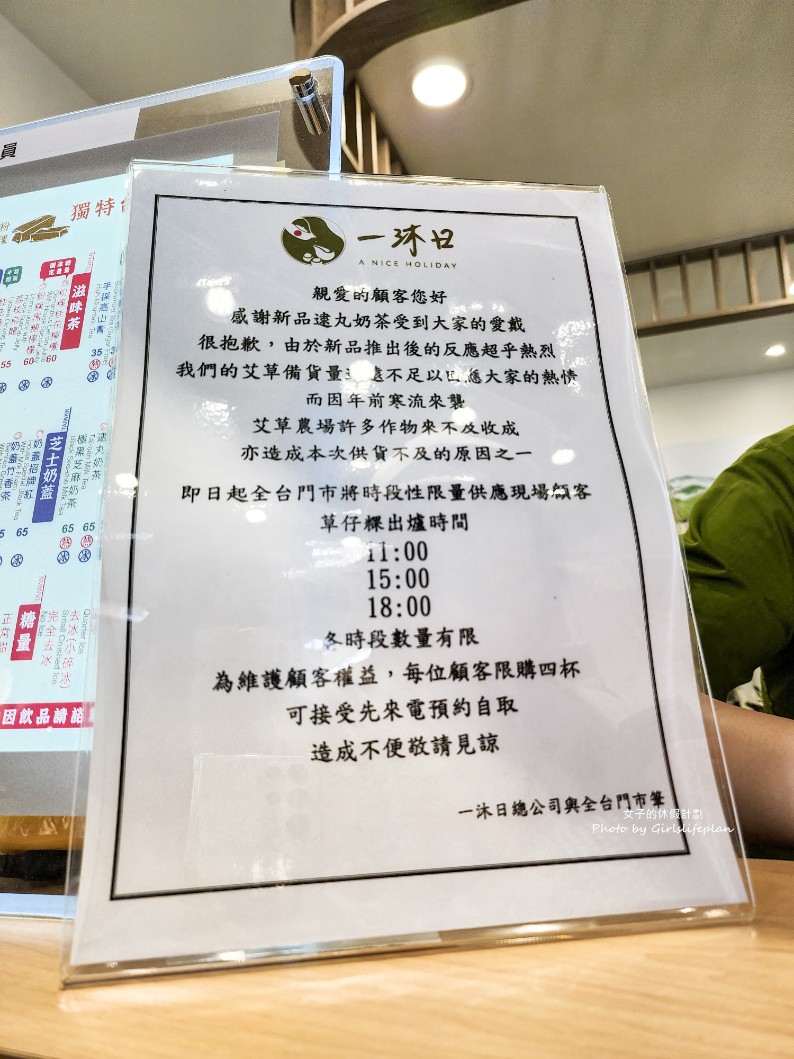 員
獨特
滋味茶
手採高山青
35
60
60
55
芝士奶蓋
逮丸奶茶
極黑芝麻奶茶
奶蓋招牌紅
奶蓋竹香茶
65
65
65
糖量
Quarter Ice
去冰(小碎冰)
Small Crushed Ice
完全去冰
No Ice
正常甜
因飲品請諮
一沐日
A NICE HOLIDAY
親愛的顧客您好
感謝新品逮丸奶茶受到大家的愛戴
很抱歉，由於新品推出後的反應超乎熱烈
我們的艾草備貨量遠遠不足以回應大家的熱情
而因年前寒流來襲
艾草農場許多作物來不及收成
亦造成本次供貨不及的原因之一
即日起全台門市將時段性限量供應現場顧客
草仔粿出爐時間
11:00
15:00
18:00
各時段數量有限
為維護顧客權益，每位顧客限購四杯
可接受先來電預約自取
造成不便敬請見諒
一沐日總公司與全台門市筆
女子的休假計劃
Photo by Girlslifeplan